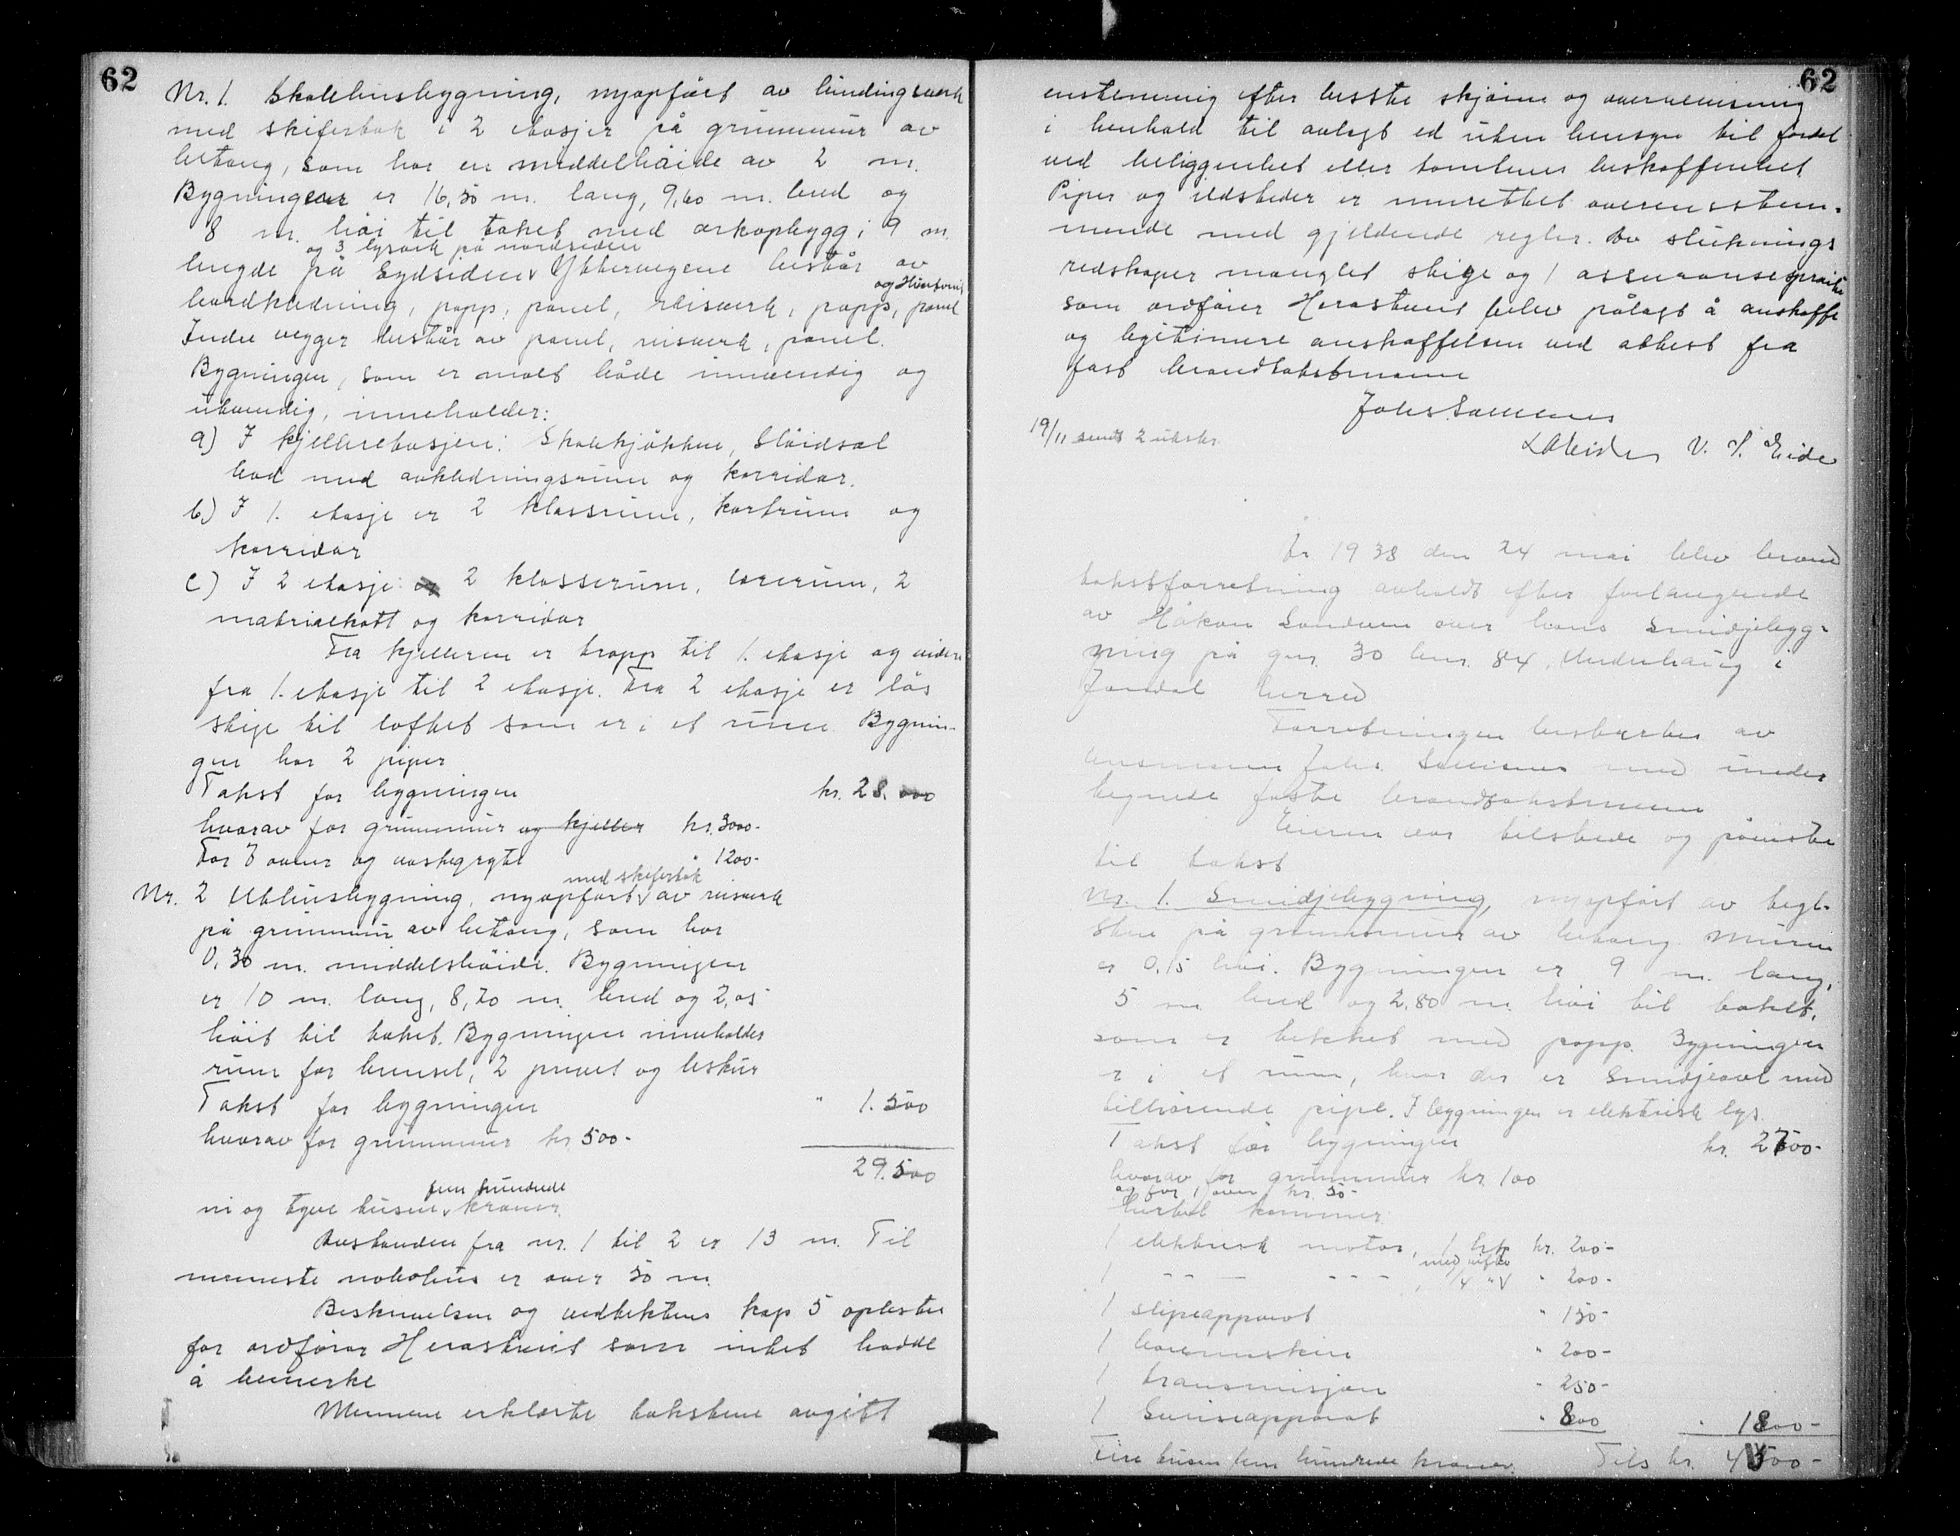 62
Nr. 1. Skolehusbygning, nyopført av bindingsverk
med skifertak i 2 etasjer på grunnmur av
betong, som har en middelhöide av 2 m.
Bygningen er 16,50 m. lang, 9,60 m. bred og
8 m. höi til taket med arkopbygg i 9 m.
og 3 lysark på nordsiden
lengde på Sydsiden. Ytterveggene består av
og Huntonit
bordkledning, papp, panel, reisverk, papp, panel
Indre vegger består av panel, reisverk, panel.
Bygningen, som er malt både innvendig og
utvendig, inneholder:
a) I kjelleretasjen: Skolekjökken, Slöidsal
bad med avkledningsrum og korridor.
b) I 1. etasje er 2 klasserum, kartrum og
korridor
c) I 2 etasje: 2 klasserum, lærerum, 2
matrialkott og korridor
Fra kjelleren er trapp til 1. etasje og videre
fra 1. etasje til 2 etasje. Fra 2 etasje er lös
stige til loftet som er i et rum. Bygnin-
gen har 2 piper
Takst for bygningen kr. 28.000
hvorav for grunnmur og kjeller kr. 3000.-
For 7 ovner og vaskegryte 1200-
med skifertak
Nr. 2 Uthusbygning, nyopfört av reisverk
på grunnmur av betong, som har
0,30 m. middelshöide. Bygningen
er 10 m. lang, 8,20 m. bred og 2,05
höit til taket. Bygningen inneholder
rum for brensel, 2 priveet og leskur
Takst for bygningen " 1.500
hvorav for grunnmur kr 500.-
29.500
fem hundrede
ni og tyve tusen kroner.
Avstanden fra nr. 1 til 2 er 13 m. Til
nærmeste nabohus er over 50 m.
Beskrivelsen og vedtektens kap 5 oplestes
for ordförer Herastveit som intet hadde
å bemerke
Mennene erklærte takstene avgitt
62
enstemmig efter beste skjönn og overbevisning
i henhold til avlagt ed uten hensyn til fordel
ved beliggenhet eller tomtenes beskaffenhet.
Piper og ildsteder er innrettet overensstem-
mende med gjeldende regler. Av sluknings
redskaper manglet stige og 1 assuransesprøite
som ordförer Herastveit blev pålagt å anskaffe
og legitimere anskaffelsen ved attest fra
fast brandtakstmann
Johs Samnes
19/11 sendt 2 utskr.
V. S. Eide
År 1938 den 24 mai blev brand
takstforretning avholdt efter forlangende
av Håkon Sandven over hans Smidjebygg-
ning på gnr. 30 bnr. 84, Underhaug i
Jondal herred
Forretningen bestyrtes av
lensmann Johs. Samnes med under
tegnede faste brandtakstmenn
Eieren var tilstede og påviste
til takst
Nr. 1. Smidjebygning, nyopfört av tegl-
sten på grunnmur av betong. Muren
er 0,15 höi. Bygningen er 9 m. lang,
5 m bred og 2,80 m. höi til taket,
som er tekket med papp. Bygningen
er i et rum, hvor der er Smidjeavl med
tilhörende pipe. I bygningen er elektrisk lys.
Takst for bygningen kr. 2700-
hvorav for grunnmur kr 100
og for 1 ovn kr. 50-
Hertil kommer:
1 elektrisk motor, 1 hk kr. 200-
med vifte
1 -- — --- , 1/4 " " 200-
1 slipeapparat " 150-
1 boremaskin " 200-
1 transmisjon " 250-
1 Sveiseapparat " 800 " 1800-
Fire tusen fem hundrede kroner. Tils kr. 4500-